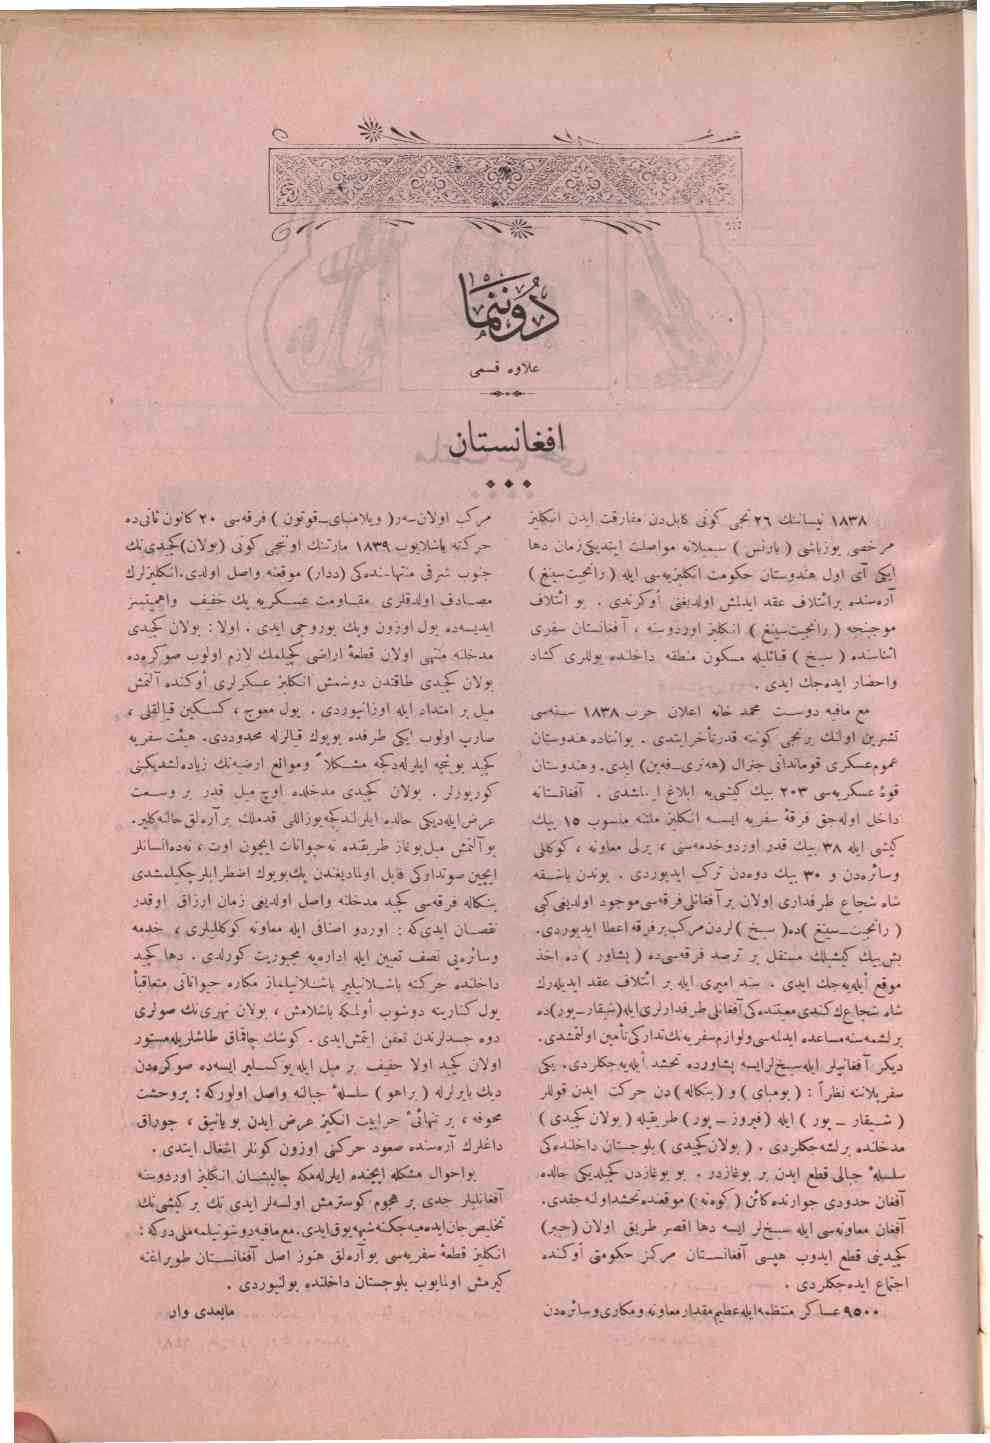 دوننما
علاوه قسمی
افغانستان
۱۸۳۸ نیساننك ۲٦ نجی كونی كابلدن مفارقت ایدن انكلیز
مرخصی یوزباشی ( بارنس ) سیمیلایه مواصلت ایتدیكی زمان دها
ایكی آی اول هندوستان حكومت انكلیزیه‌سی ایله ( رانجیت‌سینغ )
آره‌سنده برائتلاف عقد ایدلمش اولدیغنی أوكرندی . بو ائتلاف
موجبنجه ( رانجیت‌سینغ ) انكلیز اوردوسنه ، آفغانستان سفری
اثناسنده ( سیخ ) قبائلیله مسكون منطقه داخلنده یوللری كشاد
واحضار ایده‌جك ایدی .
مع مافیه دوست محمد خانه اعلان حرب ۱۸۳۸ سنه‌سی
تشرین اولنك برنجی كوننه قدر تأخر ایتدی . بواثناده هندوستان
عموم عسكری قوماندانی جنرال (هه‌نری_فه‌ین) ایدی. وهندوستان
قوۀ عسكریه‌سی ۲۰۳ بیك كیشی‌یه ابلاغ ایدلمشدی . آفغانستانه
داخل اوله‌جق فرقۀ سفریه ایسه انكلیز ملتنه منسوب ۱٥ بیك
كیشی ایله ۳۸ بیك قدر اوردو خدمه‌سی ، یرلی معاونه ، كوكللی
وسائره‌دن و ۳۰ بیك دوه‌دن تركب ایدیوردی . بوندن باشقه
شاه شجاع طرفداری اولان بر آفغانلی فرقه‌سی موجود اولدیغی كبی
( رانجیت_سینغ )ده( سیخ )لردن مركب برفرقه اعطا ایدیوردی.
بش بیك كیشیلك مستقل بر ترصد فرقه‌سی‌ده ( پشاور ) ده اخذ
موقع ایله‌یه‌جك ایدی . سند امیری ایله بر ائتلاف عقد ایدیله‌رك
شاه شجاعك كندی معیتنده‌كی آفغانلی طرفدارلری ایله(شیقار_پور)ده
برلشمه‌سنه مساعده ایدلمه‌سی ولوازم سفریه‌نك تداركی تأمین اولنمشدی.
دیكر آفغانیلر ایله سیخلر ایسه پشاورده تحشد ایله‌یه‌جكلردی. یكی
سفر پلاننه نظراً : ( بومبای ) و ( بنكاله )دن حركت ایدن قوللر
( شیقار _ پور ) ایله ( فیروز _ پور ) طریقیله ( بولان كچیدی )
مدخلنده برلشه‌جكلردی . ( بولان كچیدی ) بلوجستان داخلنده‌كی
سلسلۀ جبالی قطع ایدن بر بوغازدر . بو بوغازدن كچیلدیكی حالده
آفغان حدودی جوارنده كائن ( كوه‌ته ) موقعنده تحشد اوله‌جقدی.
آفغان معاونه‌سی ایله سیخلر ایسه دها اقصر طریق اولان (خیبر)
كچیدینی قطع ایدوب هپسی آفغانستان مركز حكومتی اوكنده
اجتماع ایده‌جكلردی .
۹٥۰۰ عساكر منتظمه ایله عظیم مقدار معاونه ومكاری وسائره‌دن
مركب اولان سه‌ر( ویلامبای_قوتون ) فرقه‌سی ۲۰ كانون ثانی‌ده
حركته باشلایوب ۱۸۳۹ مارتنك اوننجی كونی (بولان)كچیدی‌نك
جنوب شرقی منتهاسنده‌كی (ددار) موقعنه واصل اولدی. انكلیزلرك
مصادف اولدقلری مقاومت عسكریه پك خفیف واهمیتسز
ایدیسه‌ده یول اوزون وپك یوروجی ایدی . اولا : بولان كچیدی
مدخلنه منتهی اولان قطعۀ اراضی كچیلمك لازم اولوب صوكره‌ده
بولان كچیدی طاقتدن دوشمش انكلیز عسكرلری أوكنده آلتمش
میل بر امتداد ایله اوزانیوردی . یول معوج ، كسكین قیالقلی ،
صارپ اولوب ایكی طرفده بویوك قیالرله محدوددی. هیئت سفریه
كچید بوینجه ایلریله‌دكجه مشكلات وموانع ارضیه‌نك زیاده‌لشدیكنی
كوریورلر . بولان كچیدی مدخلده اوچ میل قدر بر وسعت
عرض ایله‌دیكی حالده ایلرلندكجه یوزاللی قدملك بر آره‌لق حالنه كلیر.
بو آلتمش میل بوغاز طریقنده نه حیوانات ایچون اوت ، نه‌ده انسانلر
ایچین صو تداركی قابل اولمادیغندن پك بویوك اضطرابلر چكیلمشدی
بنكاله فرقه‌سی كچید مدخلنه واصل اولدیغی زمان ارزاق اوقدر
نقصان ایدی‌كه : اوردو اصنافی ایله معاونه كوكللیلری ، خدمه
وسائره‌یی نصف تعیین ایله اداره‌یه مجبوریت كورلدی . دها كچید
داخلنده حركته باشلانیلیر باشلانیلماز مكاره حیواناتی متعاقباً
یول كنارینه دوشوب أولمكه باشلامش ، بولان نهری‌نك صولری
دوه جسدلرندن تعفن ایتمش ایدی . كوشك چاقماق طاشلریله مستور
اولان كچید اولا خفیف بر میل ایله یوكسلیر ایسه‌ده صوكره‌دن
دیك بایرلرله ( براهو ) سلسلۀ جبالنه واصل اولوركه : پروحشت
مخوفه ، بر تنهائی خرابیت انكیز عرض ایدن بو یانیق ، چوراق
داغلرك آره‌سنده صعود حركتی اوزون كونلر اشغال ایتدی .
بواحوال مشكله ایچنده ایلریله‌مكه چالیشان انكلیز اوردوسنه
آفغانلیلر جدی بر هجوم كوسترمش اولسه‌لر ایدی تك بر كیشی‌نك
تخلیص جان ایده‌میه‌جكنه شبهه یوق ایدی. مع مافیه روشونیلمه‌ملی‌دركه :
انكلیز قطعۀ سفریه‌سی بو آره‌لق هنوز اصل آفغانستان طوپراغنه
كیرمش اولمایوب بلوجستان داخلنده بولنیوردی .
مابعدی وار